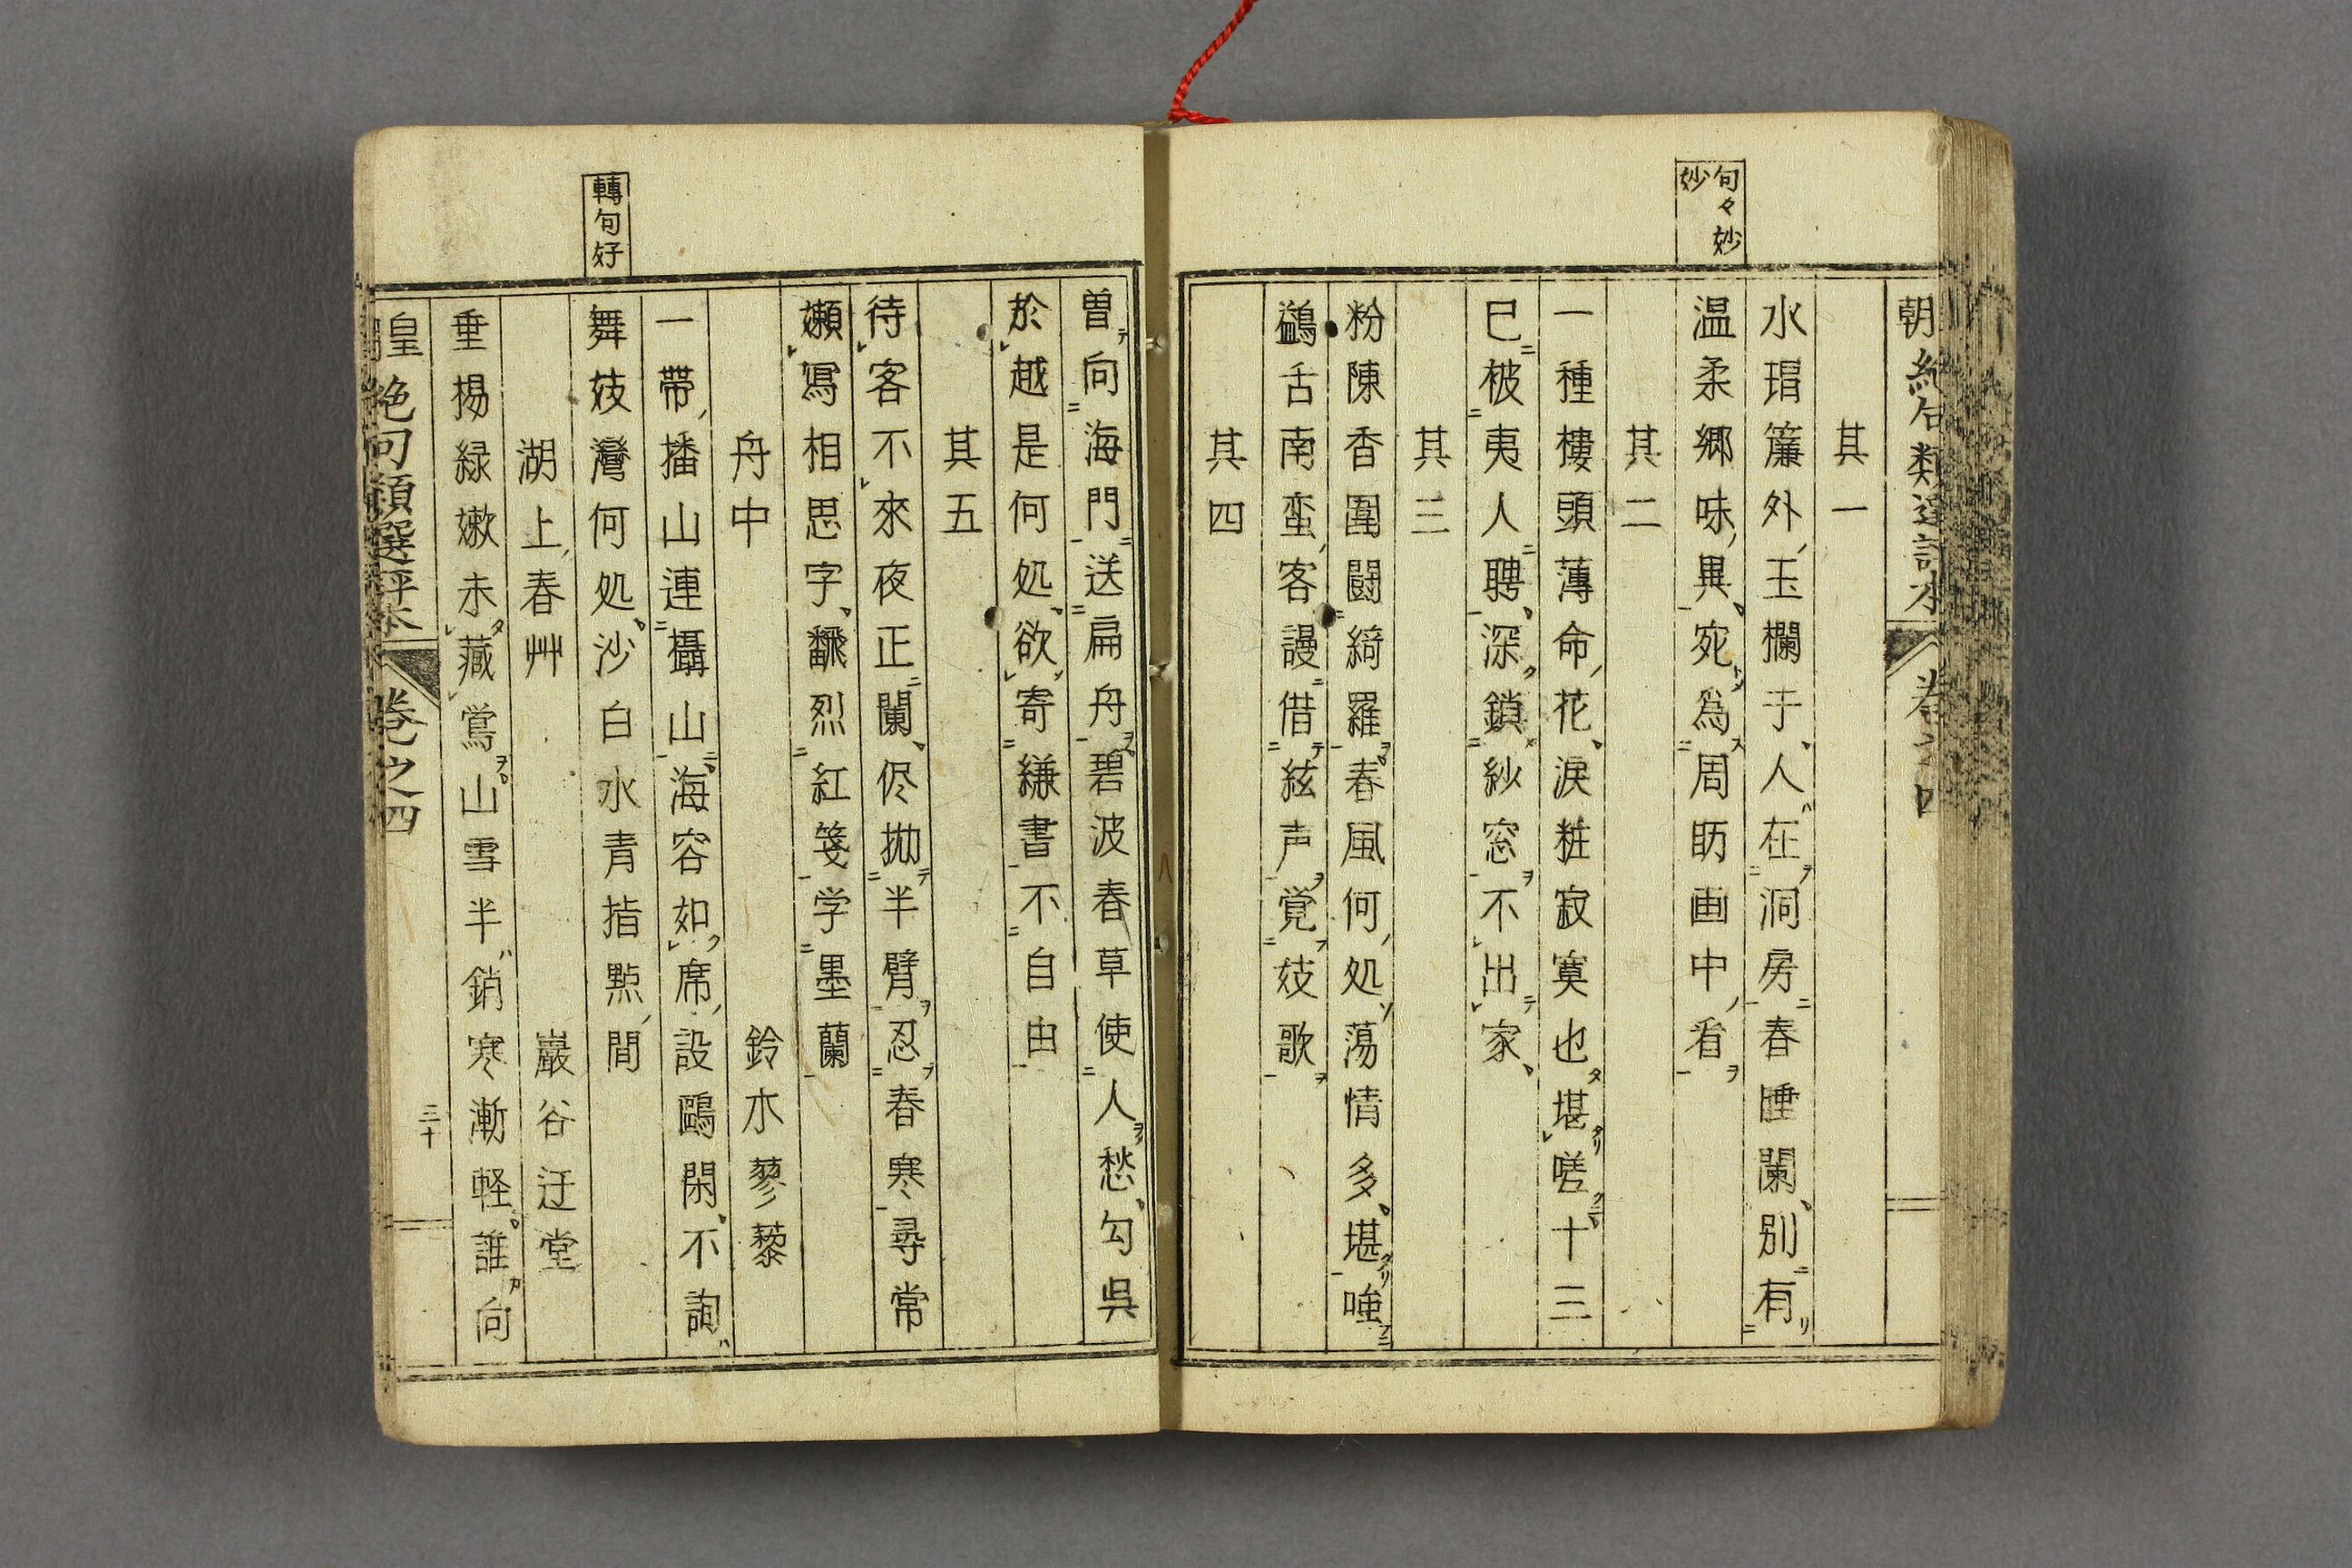 句々妙
妙
其一
水瑁簾外玉欄于人在洞房春睡闌別有
温柔郷味異宛爲周昉画中看
其二
一種樓頭薄命花淚粧寂寞也堪嗟十三
已被夷人聘深鎖紗窓不出家
其三
粉陳香圍鬪綺羅春風何処蕩情多堪咥
舌南蛮客謾借絃声覚妓歌
其四
曽向海門送扁舟碧波春草使人愁勾吳
於越是何処欲寄縑書不自由
其五
待客不來夜正闌侭拋半臂忍春寒尋常
嬾寫相思字飜烈紅箋学墨蘭
舟中 鈴木蓼藜
轉句好
一帶播山連攝山海容如席設鷗閑不詢
舞妓灣何処沙白水青指點間
湖上春艸 巖谷迂堂
垂楊緑嫩未藏鴬山雪半銷寒漸軽誰向
皇 絶句類選評本 卷之四
三十